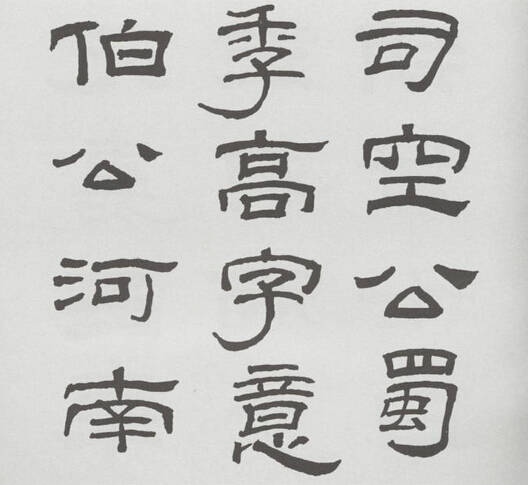 司空公蜀
季高字意
伯公河南